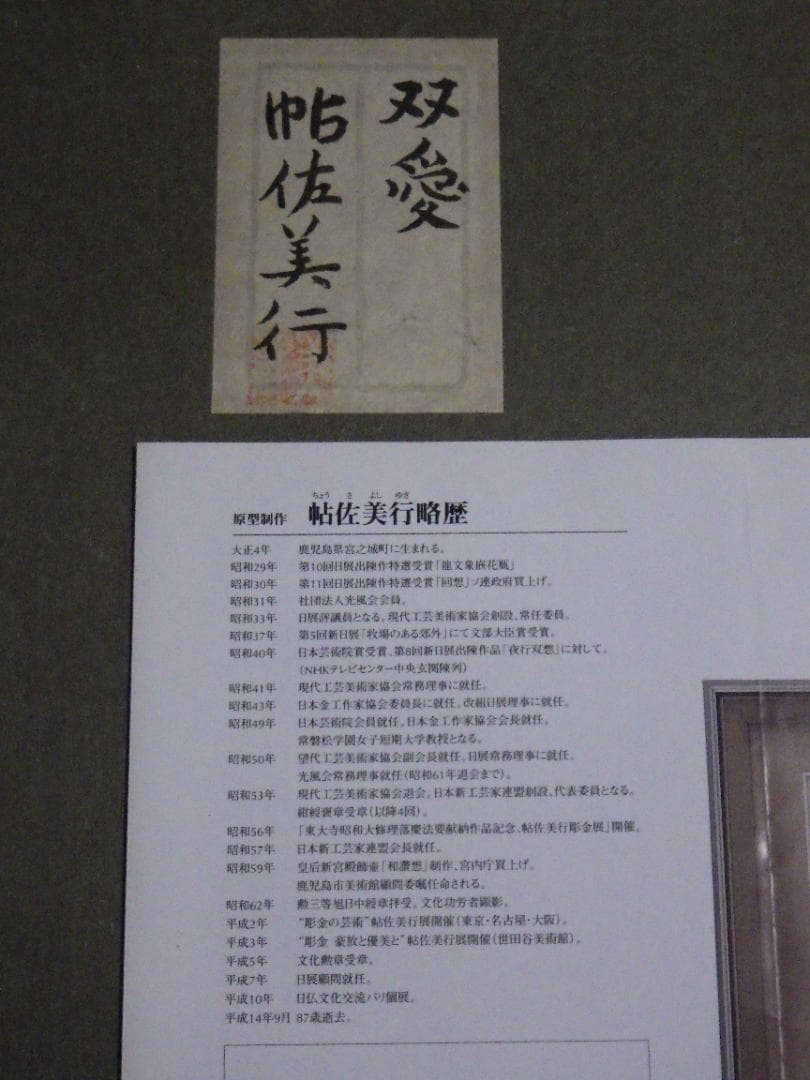 双愛
帖佐美行
ちょう さ よし ゆき
原型制作 帖佐美行略歴
大正4年 鹿児島県宮之城町に生まれる。
昭和29年 第10回日展出陳作特選受賞「龍文象嵌花瓶」
昭和30年 第11回日展出陳作特選受賞「回想」ソ連政府買上げ。
昭和31年 社団法人光風会会員。
昭和33年 日展評議員となる。現代工芸美術家協会創設、常任委員。
昭和37年 第5回新日展「牧場のある郊外」にて文部大臣賞受賞。
昭和40年 日本芸術院賞受賞、第8回新日展出陳作品「夜行双想」に対して。
（NHKテレビセンター中央玄関陳列）
昭和41年 現代工芸美術家協会常務理事に就任。
昭和43年 日本金工作家協会委員長に就任。改組日展理事に就任。
昭和49年 日本芸術院会員就任。日本金工作家協会会長就任。
常磐松学園女子短期大学教授となる。
昭和50年 望代工芸美術家協会副会長就任。日展常務理事に就任。
光風会常務理事就任（昭和61年退会まで）。
昭和53年 現代工芸美術家協会退会。日本新工芸家連盟創設、代表委員となる。
紺綬褒章受章（以降4回）。
昭和56年 「東大寺昭和大修理落慶法要献納作品記念、帖佐美行彫金展」開催。
昭和57年 日本新工芸家連盟会長就任。
昭和59年 皇后新宮殿飾壷「和讃想」制作、宮内庁買上げ。
鹿児島市美術館顧問委嘱任命される。
昭和62年 勲三等旭日中綬章拝受。文化功労者顕彰。
平成2年 “彫金の芸術”帖佐美行展開催（東京・名古屋・大阪）。
平成3年 “彫金 豪放と優美と”帖佐美行展開催（世田谷美術館）。
平成5年 文化勲章受章。
平成7年 日展顧問就任。
平成10年 日仏文化交流パリ個展。
平成14年9月 87歳逝去。